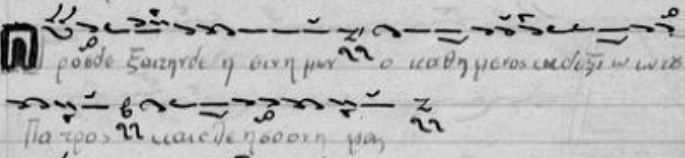 Προσδε ξαιτηνδε η σινη μων ο καθη μενος εκδεξι ω ων του
Πα τρος και ελε ησονη μας